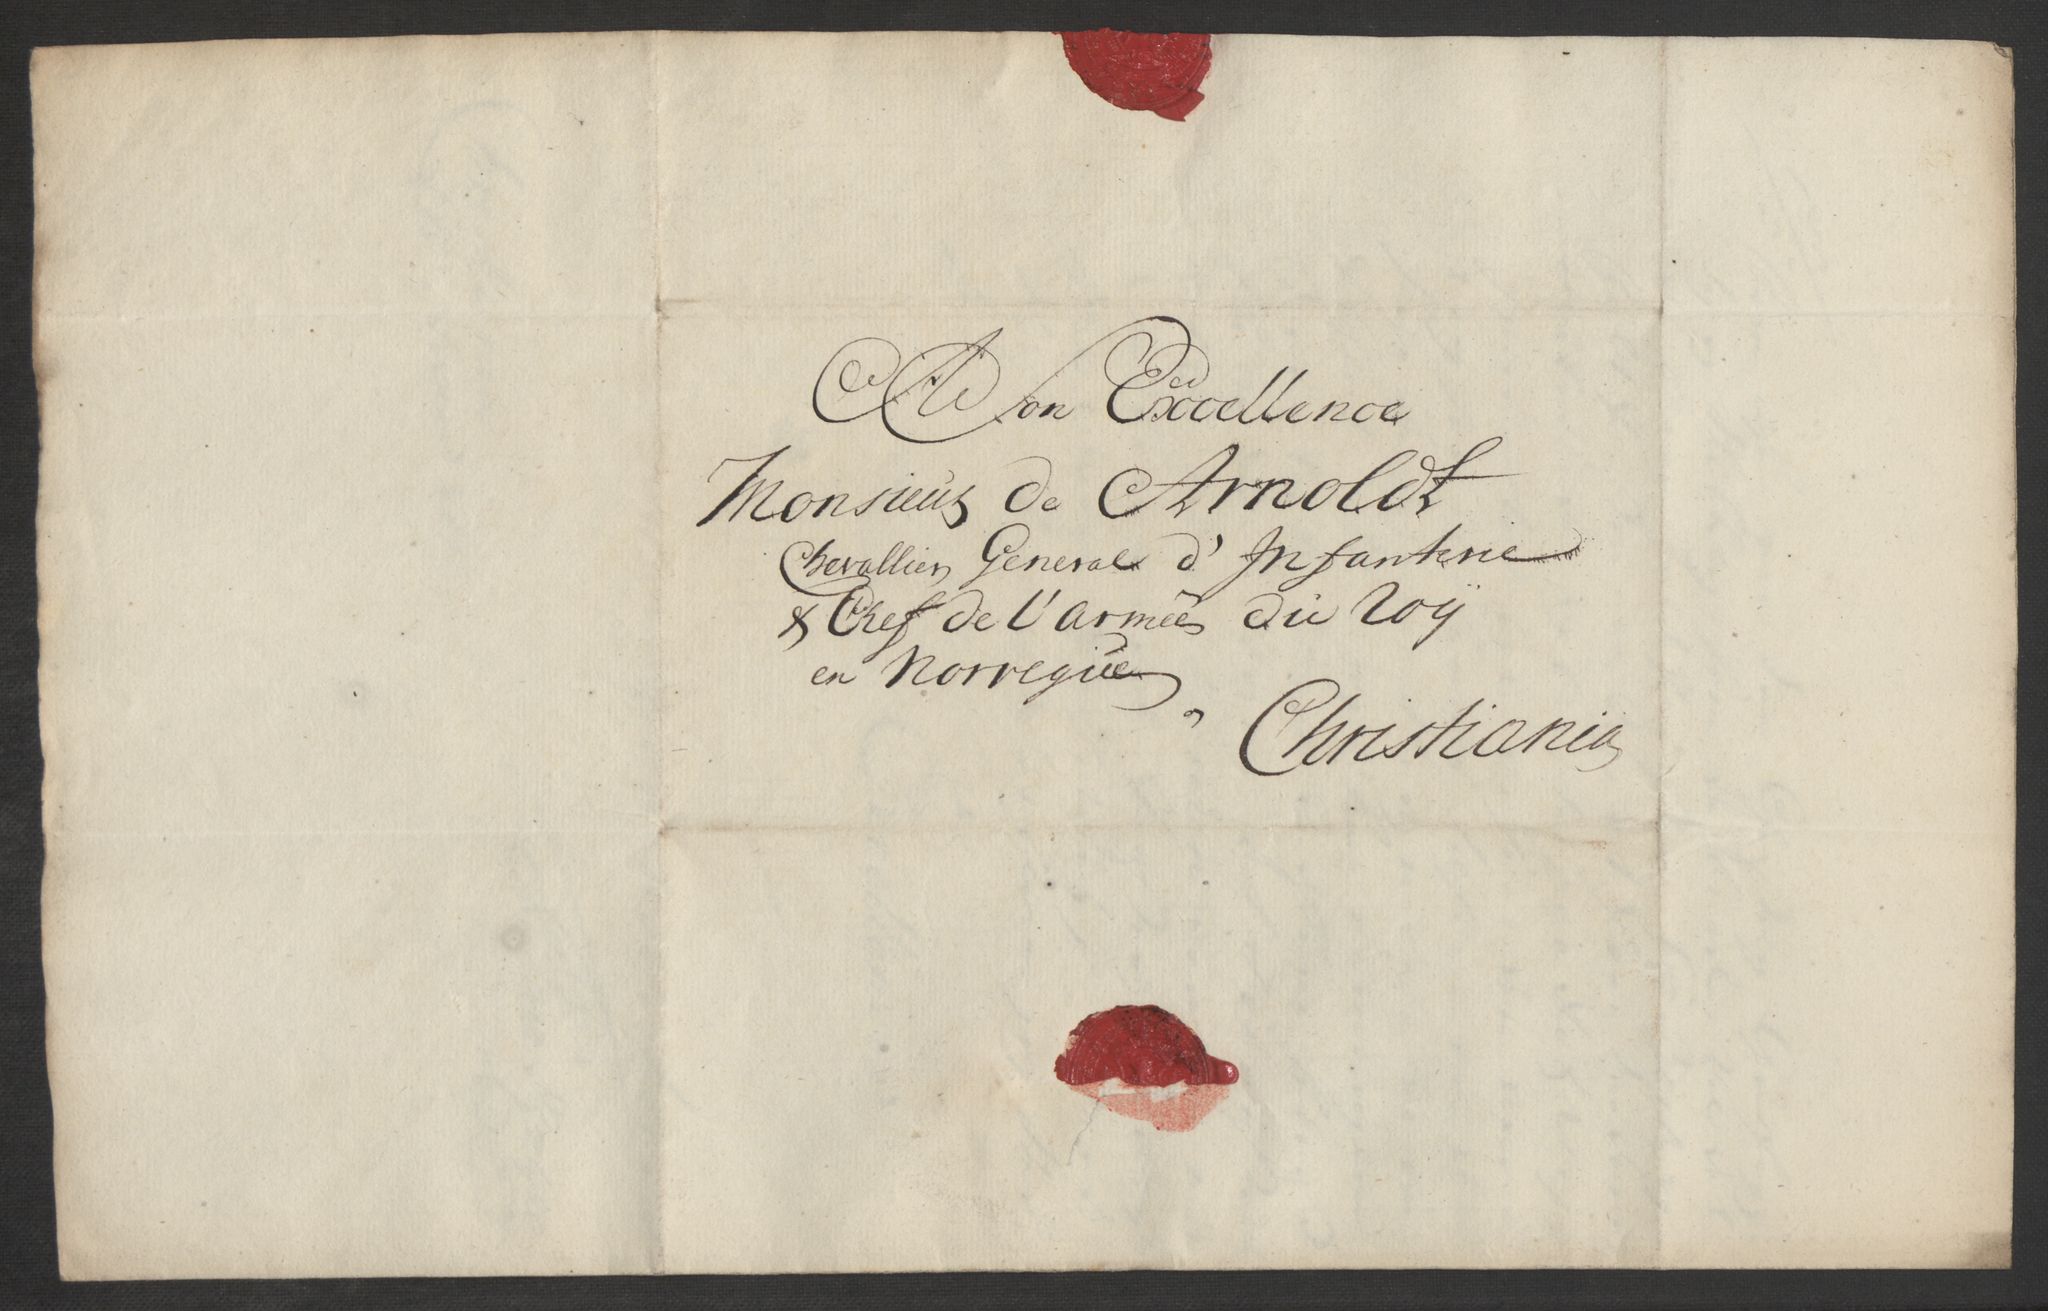 A Son Excellence
Monsieur de Arnoldt
Chevallier General d'Infanterie
& Chef de l'armée du Roÿ
en Norregue
Christiania